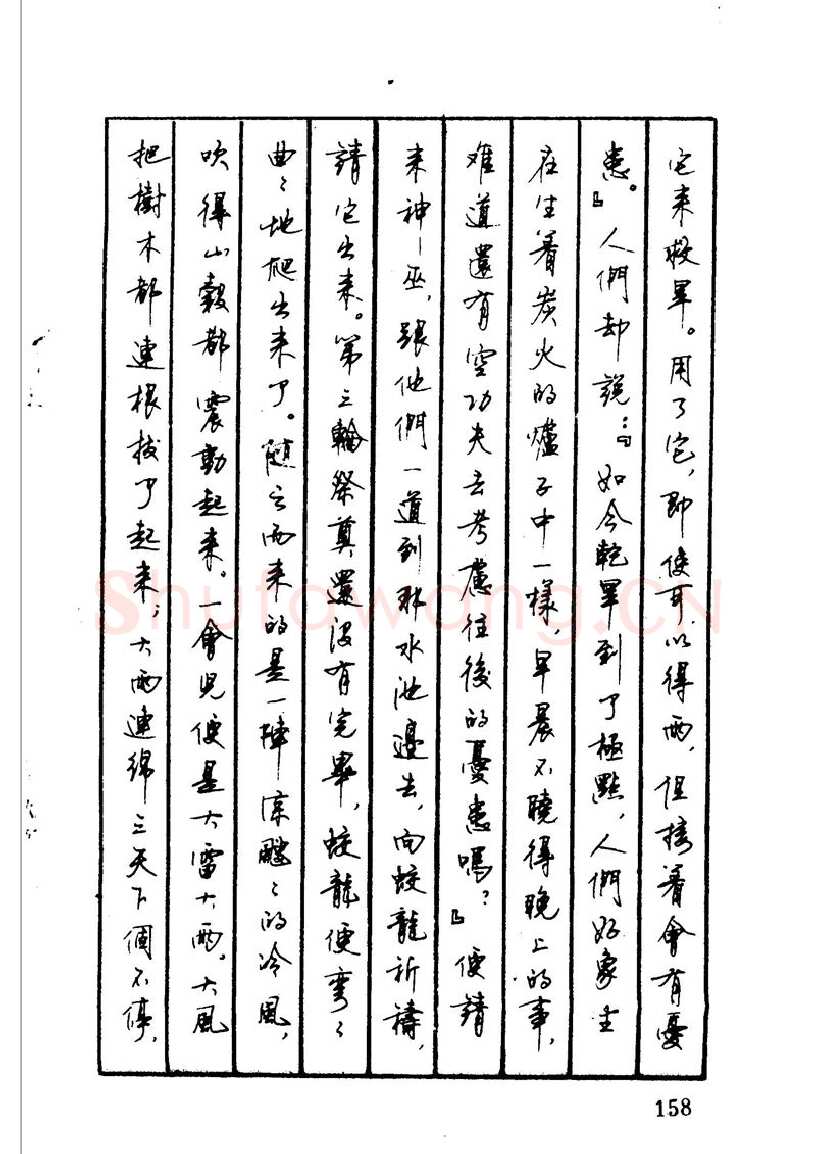 它来救旱。用了它，即使可以得雨，但接着會有憂
患。』人們却説：『如今乾旱到了極點，人們好象生
在生着炭火的爐子中一樣，早晨不曉得晚上的事，
难道還有空功夫去考慮往後的憂患嗎？』便請
来神巫，跟他們一道到那水池邊去，向蛟龍祈禱，
請它出来。第三輪祭奠還沒有完畢，蛟龍便彎彎
曲曲地爬出来了。随之而来的是一陣凉飕飕的冷風，
吹得山穀都震動起来。一會兒便是大雷大雨。大風
把樹木都連根拔了起来，大雨連綿三天下個不停。
158
Shufawang.CN